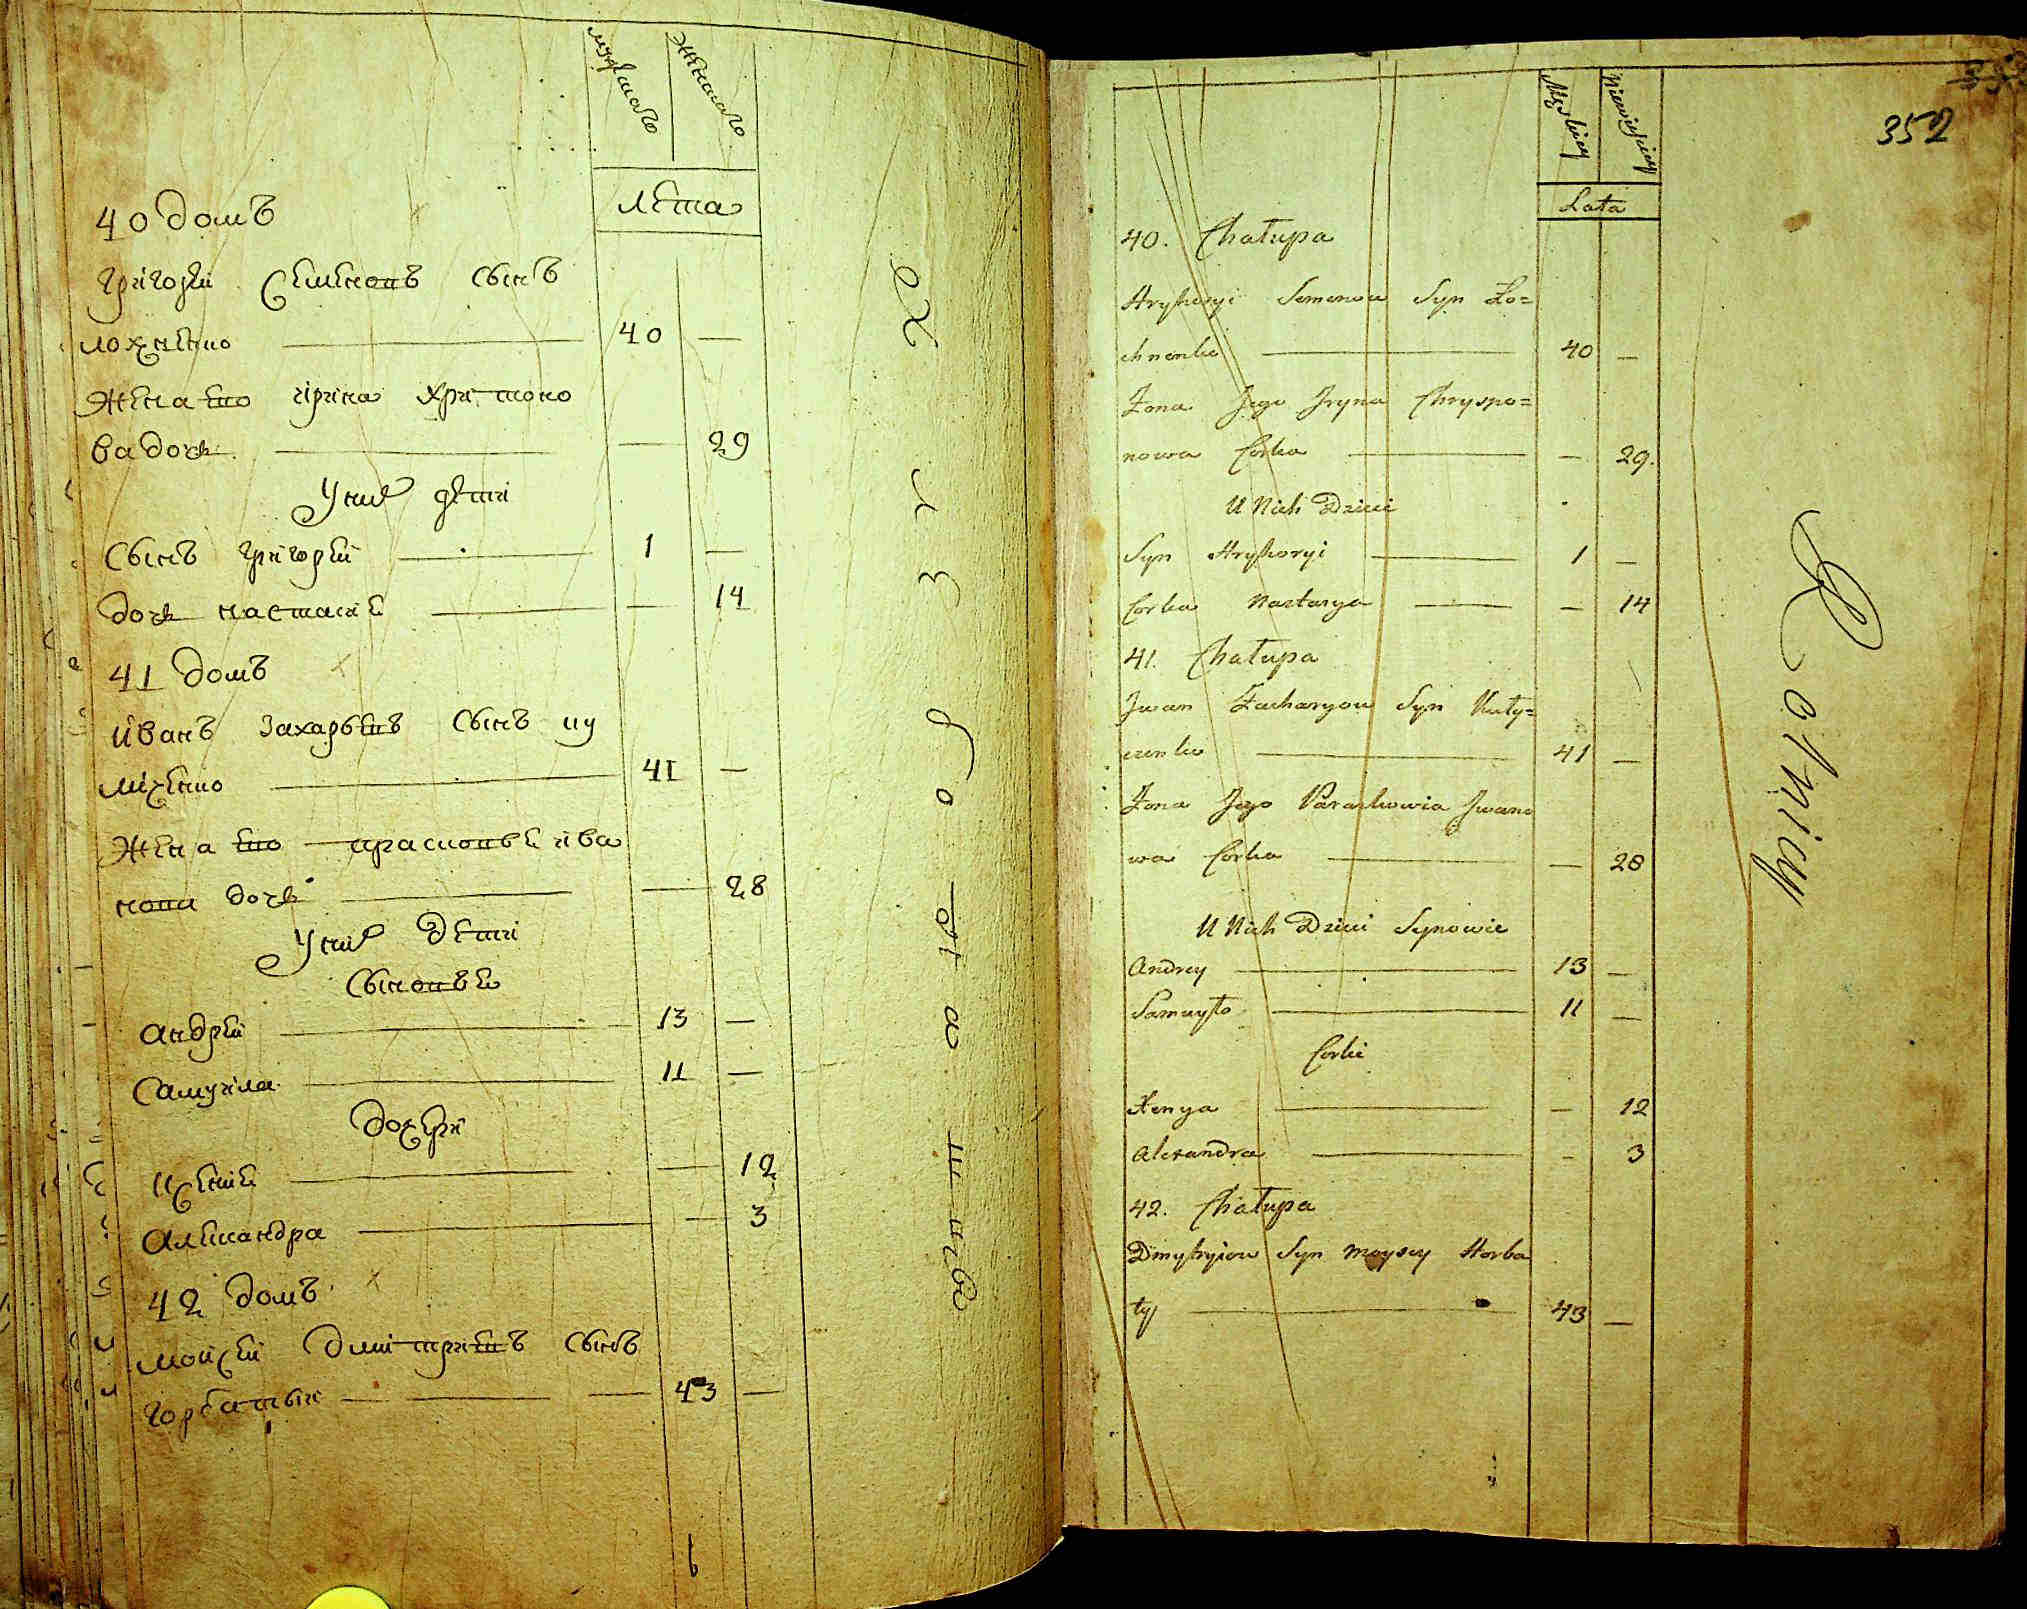 мужеска
женска
лета
40 домъ
григорей Семеновъ Сынъ
лохненко
40 —
жена его ирина Хрисаноно
ва дочь
— 29
У них дети
Сынъ григорей
1 —
дочь настасия
— 14
41 домъ
иванъ Захарьевъ Сынъ ку
личенко
41 —
жена его прасковья ива
нова дочь
— 28
У них дети
Сыновья
андрей
13 —
Самуила
11 —
дочери
ксения
— 12
Александра
— 3
42 домъ
мойсей дмитриевъ Сынъ
горбатыи
43 —
Хлѣбопашцы
352
Męskiey
Niewieściey
Lata
40. Chałupa
Hryhoryi Semenow Syn Ło=
chnenko — 40 —
Żona Jego Iryna Chryspo=
nowa Corka — — 29.
U Nich Dzieci
Syn Hryhoryi — 1 —
Corka Nastasya — — 14
41. Chałupa
Iwan Zacharyow Syn Kuły=
czenko — 41 —
Żona Jego Paraskowia Iwano
wa Corka — — 28
U Nich Dzieci Synowie
Andrey — 13 —
Samuyło — 11 —
Corki
Xenya — — 12
Alexandra — — 3
42. Chałupa
Dmytryiow Syn Moysey Horba
ty — 43 —
Rolnicy